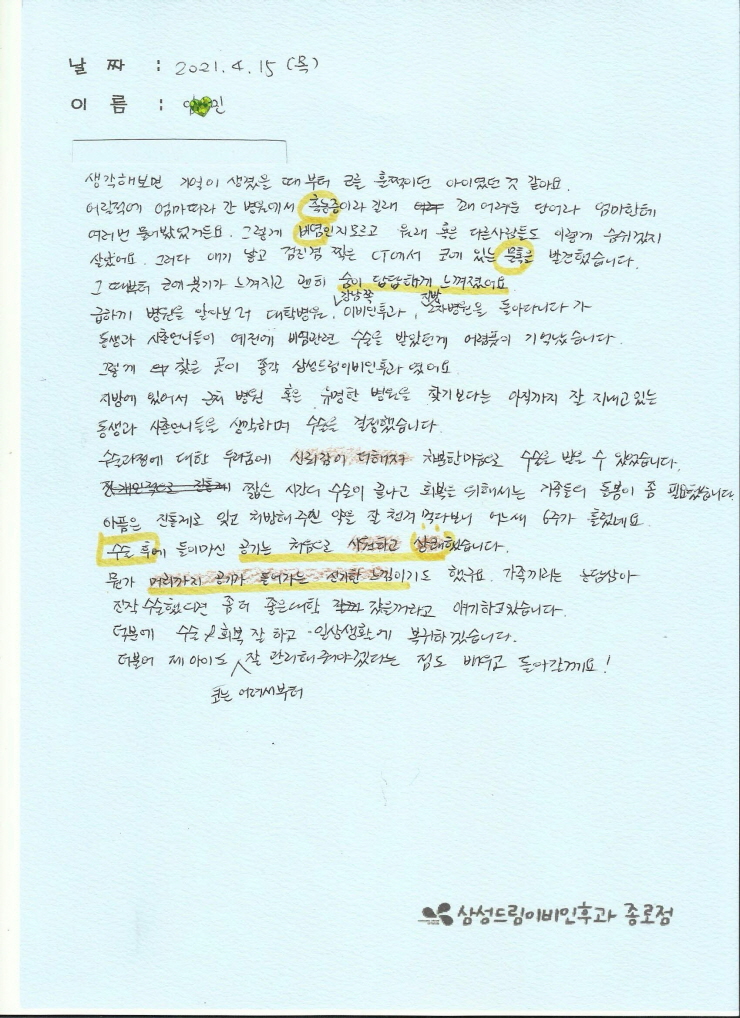 날 짜 : 2021. 4. 15 (목)
이 름 : 민
생각해보면 기억이 생겼을 때부터 코를 훌쩍이던 아이였던 것 같아요.
어릴적에 엄마따라 간 병원에서 축농증이라길래 꽤 어려운 단어라 엄마한테
여러번 물어봤었거든요. 그렇게 비염인지모르고 원래 혹은 다른사람들도 이렇게 숨쉬겠지
살았어요. 그러다 애기 낳고 검진겸 찍은 CT에서 코에 있는 물혹을 발견했습니다.
그 때부터 코에 붓기가 느껴지고 괜히 숨이 답답하게 느껴졌어요
급하게 병원을 알아보러 대학병원, 강남쪽 이비인후과, 지방 2차병원을 돌아다니다가
동생과 사촌언니들이 예전에 비염관련 수술을 받았던게 어렴풋이 기억났습니다.
그렇게 찾은 곳이 종각 삼성드림이비인후과 였어요
지방에 있어서 근처 병원 혹은 유명한 병원을 찾기보다는 아직까지 잘 지내고 있는
동생과 사촌언니들을 생각하며 수술을 결정했습니다.
수술과정에 대한 두려움에 신뢰감이 더해져 차분한마음으로 수술을 받을 수 있었습니다.
짧은 시간에 수술이 끝나고 회복을 위해서는 가족들의 돌봄이 좀 필요했습니다.
아픔은 진통제로 잊고 처방해주신 약을 잘 챙겨 먹다보니 어느새 6주가 흘렀네요.
수술 후에 들이마신 공기는 처음으로 시원하고 상쾌했습니다.
뭔가 머리까지 공기가 들어가는 신기한 느낌이기도 했구요. 가족끼리는 농담삼아
진작 수술했다면 좀 더 좋은대학 갔을꺼라고 얘기하고있습니다.
덕분에 수술 & 회복 잘 하고 일상생활에 복귀하겠습니다.
더불어 제 아이도 코는 어려서부터 잘 관리해줘야겠다는 점도 배우고 돌아갈께요!
삼성드림이비인후과 종로점